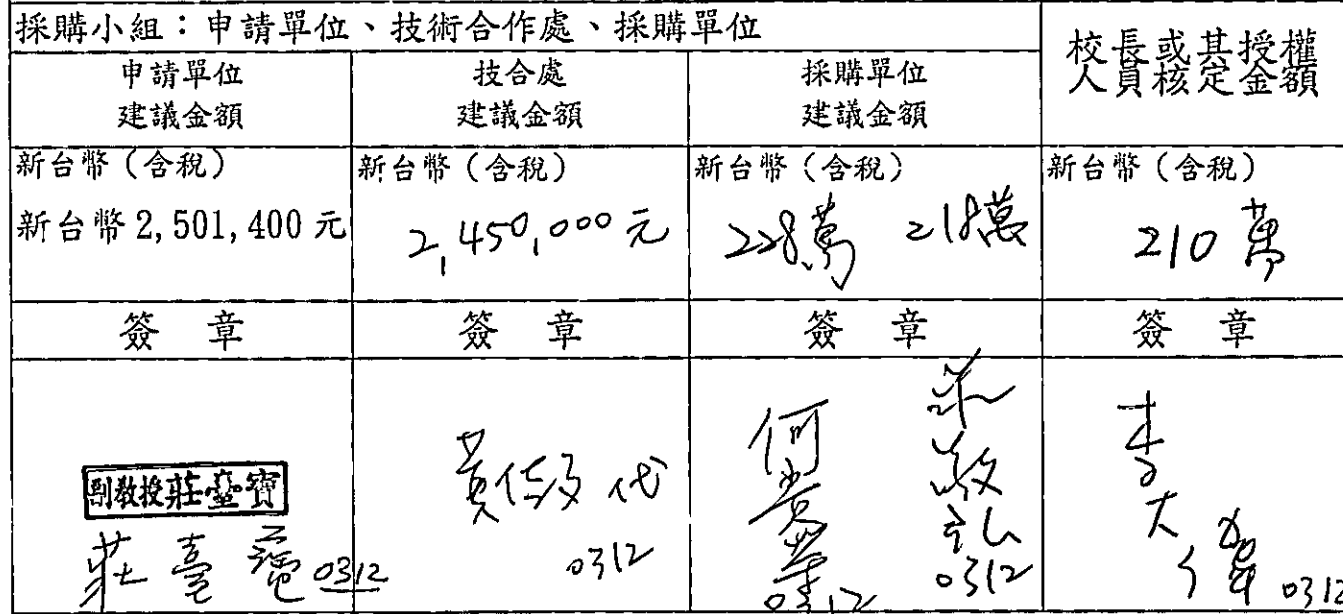 採購小組：申請單位、技術合作處、採購單位
校長或其授權
人員核定金額
申請單位
建議金額
技合處
建議金額
採購單位
建議金額
新台幣（含稅）
新台幣 2,501,400 元
新台幣（含稅）
2,450,000 元
新台幣（含稅）
228萬 218萬
新台幣（含稅）
210 萬
簽 章
簽 章
簽 章
簽 章
副教授莊臺寶
莊臺寶 0312
代
0312
何
0312
0312
李大偉 0312